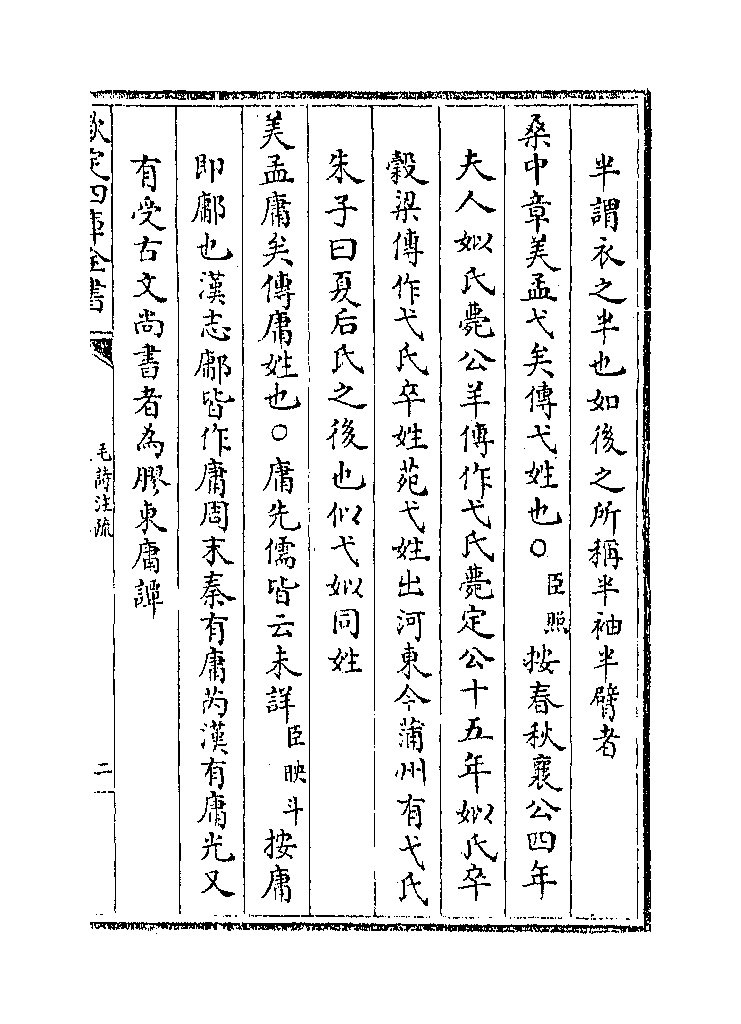 半謂衣之半也如後之所稱半袖半臂者
桑中章美孟弋矣傳弋姓也○臣照按春秋襄公四年
夫人姒氏薨公羊傳作弋氏薨定公十五年姒氏卒
糓梁傳作弋氏卒姓苑弋姓出河東今蒲州有弋氏
朱子曰夏后氏之後也似弋姒同姓
美孟庸矣傳庸姓也○庸先儒皆云未詳臣映斗按庸
即鄘也漢志鄘皆作庸周末秦有庸芮漢有庸光又
有受古文尚書者為膠東庸譚
欽定四庫全書
毛詩注疏
二